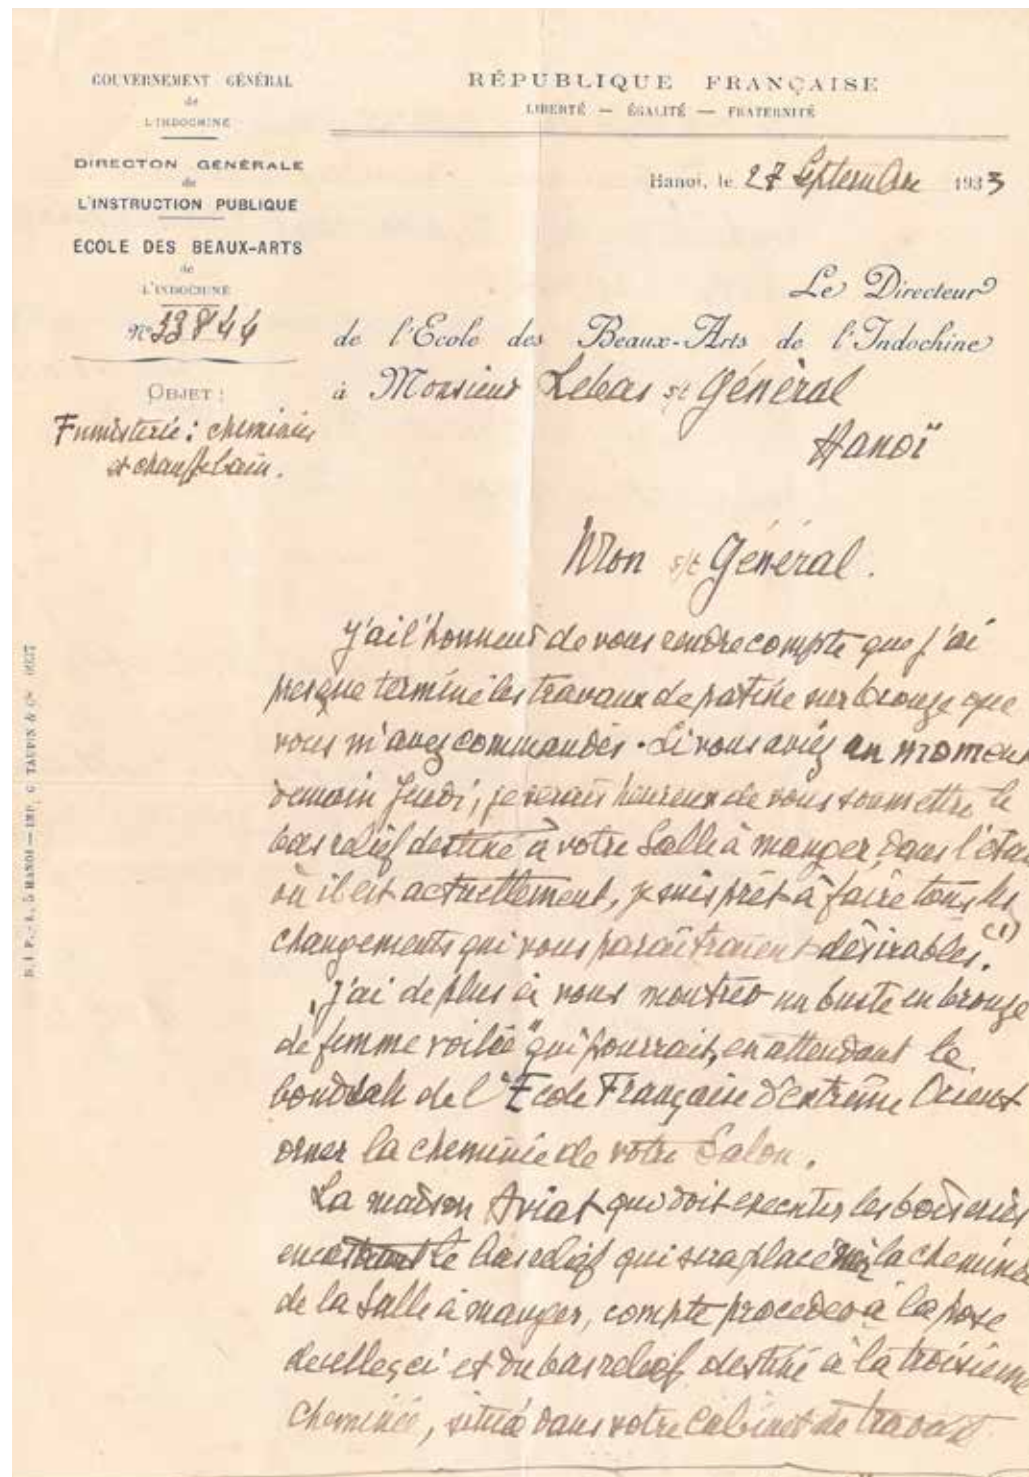 GOUVERNEMENT GÉNÉRAL
de
L'INDOCHINE
DIRECTON GÉNÉRALE
de
L'INSTRUCTION PUBLIQUE
ECOLE DES BEAUX-ARTS
de
L'INDOCHINE
N° 33844
OBJET :
Fumisterie : cheminées
et chauffe bain.
RÉPUBLIQUE FRANÇAISE
LIBERTÉ — ÉGALITÉ — FRATERNITÉ
Hanoi, le 27 Septembre 1933
Le Directeur
de l'Ecole des Beaux-Arts de l'Indochine
à Monsieur Lebas s/t Général
Hanoï
Mon s/t Général.
J'ai l'honneur de vous rendre compte que j'ai
presque terminé les travaux de patine sur bronze que
vous m'avez commandés. Si vous aviez un moment
demain Jeudi, je serais heureux de vous soumettre le
bas relief destiné à votre Salle à manger, dans l'état
où il est actuellement, je suis prêt à faire tous les
changements qui vous paraîtraient désirables. (1)
J'ai de plus à vous montrer un buste en bronze
de "femme voilée" qui pourrait, en attendant le
bouddah de l'Ecole Française d'extrême Orient
orner la cheminée de votre Salon.
La maison Aviat qui doit executer les boiseries
le bas relief qui sera placé la cheminée
de la Salle à manger, compte proceder à la pose
de celles ci et du bas relief destiné à la troisieme
cheminée, située dans votre Cabinet de travail
D. I. P. - A. 5 HANOI — IMP. G. TAUPIN & Cie